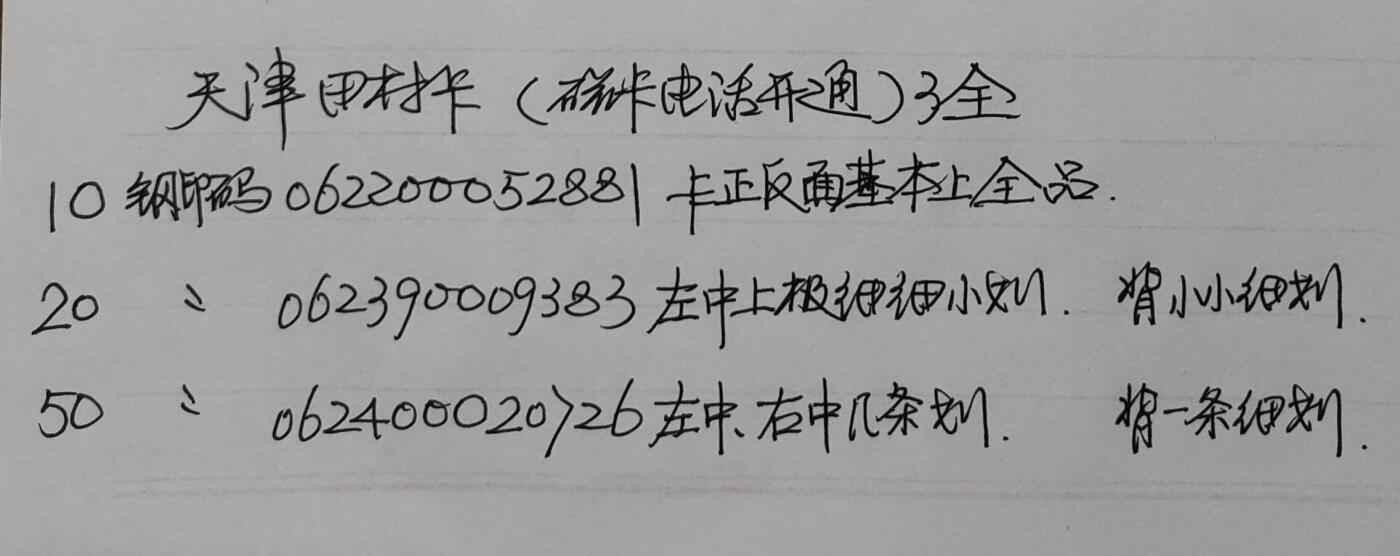 天津田村卡（磁卡电话开通）3全
10 钢印码062200052881 卡正反面基本上全品.
20 〃 062390009383 左中上极细细小划. 背小小细划.
50 〃 062400020726 左中、右中几条划. 背一条细划.